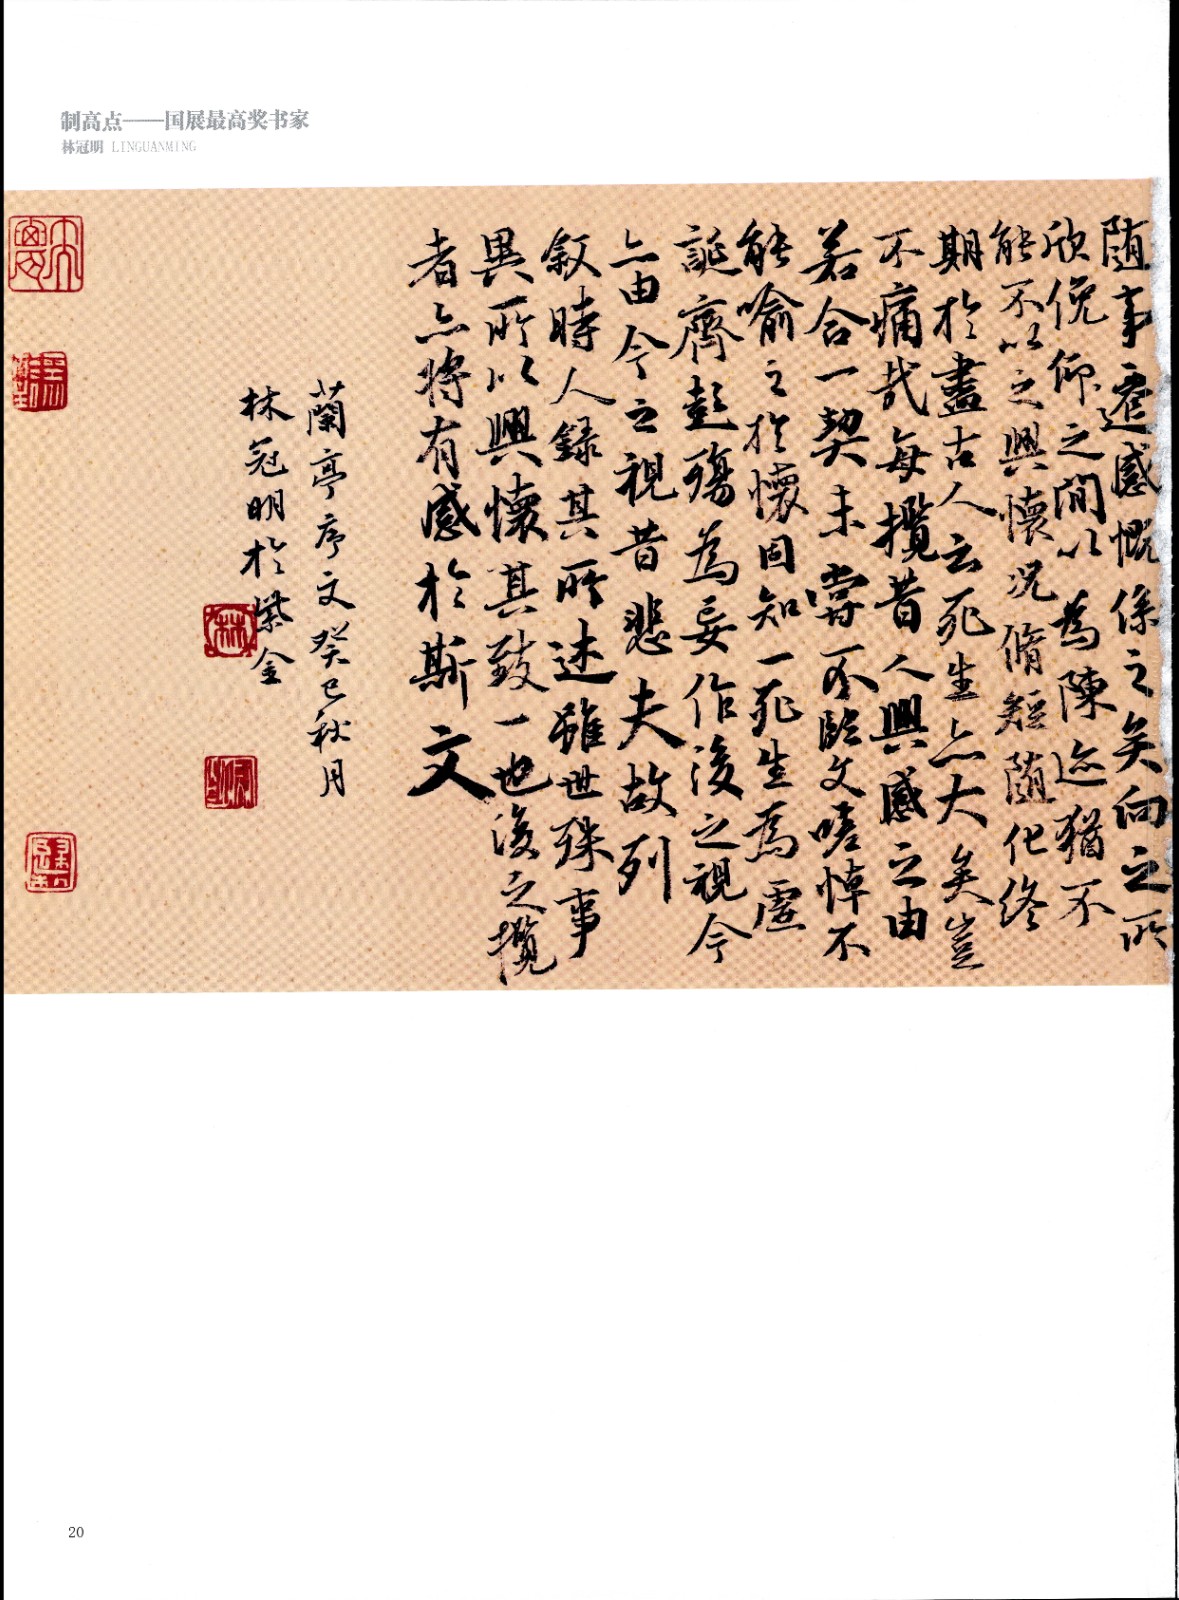 制高点——国展最高奖书家
林冠明 LINGUANMING
随事遷感慨係之矣向之所
欣俛仰之間以為陳迹猶不
能不以之興懷况脩短随化終
期於盡古人云死生亦大矣豈
不痛哉每攬昔人興感之由
若合一契未嘗不臨文嗟悼不
能喻之於懷固知一死生為虛
誕齊彭殤為妄作後之視今
亦由今之視昔悲夫故列
叙時人録其所述雖世殊事
異所以興懷其致一也後之攬
者亦將有感於斯文
蘭亭序文癸巳秋月
林冠明於紫金
林
20